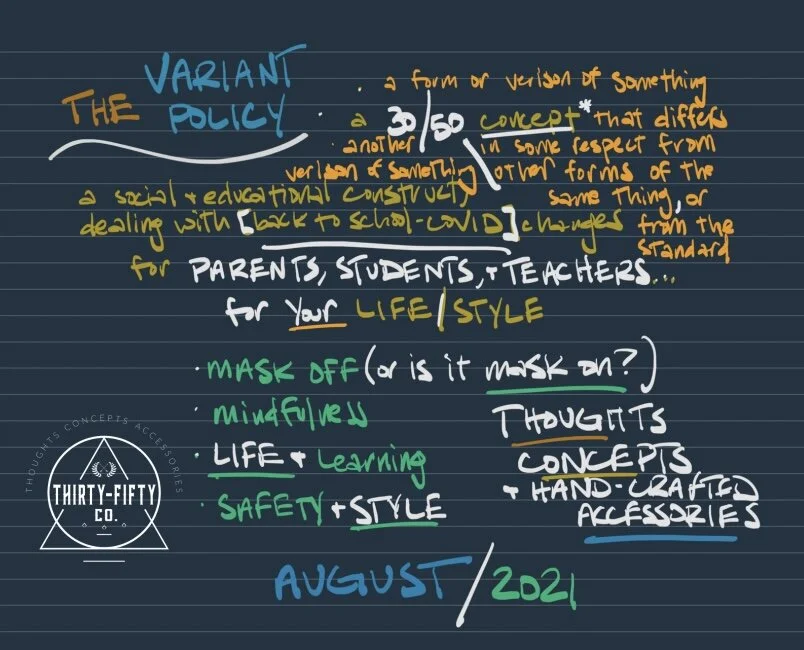 THE VARIANT POLICY
· a form or verison of something
· a 30/50 concept* that differs
· another in some respect from
verison of something other forms of the
a social + educational construct, same thing, or
dealing with [back to school-COVID] changes from the
standard
for PARENTS, STUDENTS, + TEACHERS...
for your LIFE/STYLE
· MASK OFF (or is it mask on?)
· mindfulness
· LIFE + Learning
· SAFETY + STYLE
THOUGHTS
CONCEPTS
+ HAND-CRAFTED
ACCESSORIES
THOUGHTS CONCEPTS ACCESSORIES
THIRTY-FIFTY
CO.
AUGUST/2021